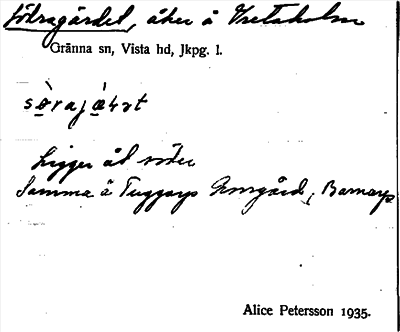 Södragärdet, åker å Vretaholm
Gränna sn, Vista hd, Jkpg. l.
sø̀rajæ̀ʈ
Ligger åt söder
Samma å Tuggarps Norrgård, Barnarp
Alice Petersson 1935.